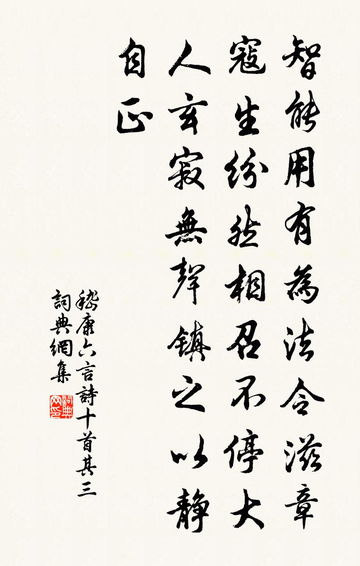 智能用有為法令滋章
寇生紛然相召不停大
人玄寂無聲鎮之以靜
自正
嵇康六言詩十首其三
詞典網集